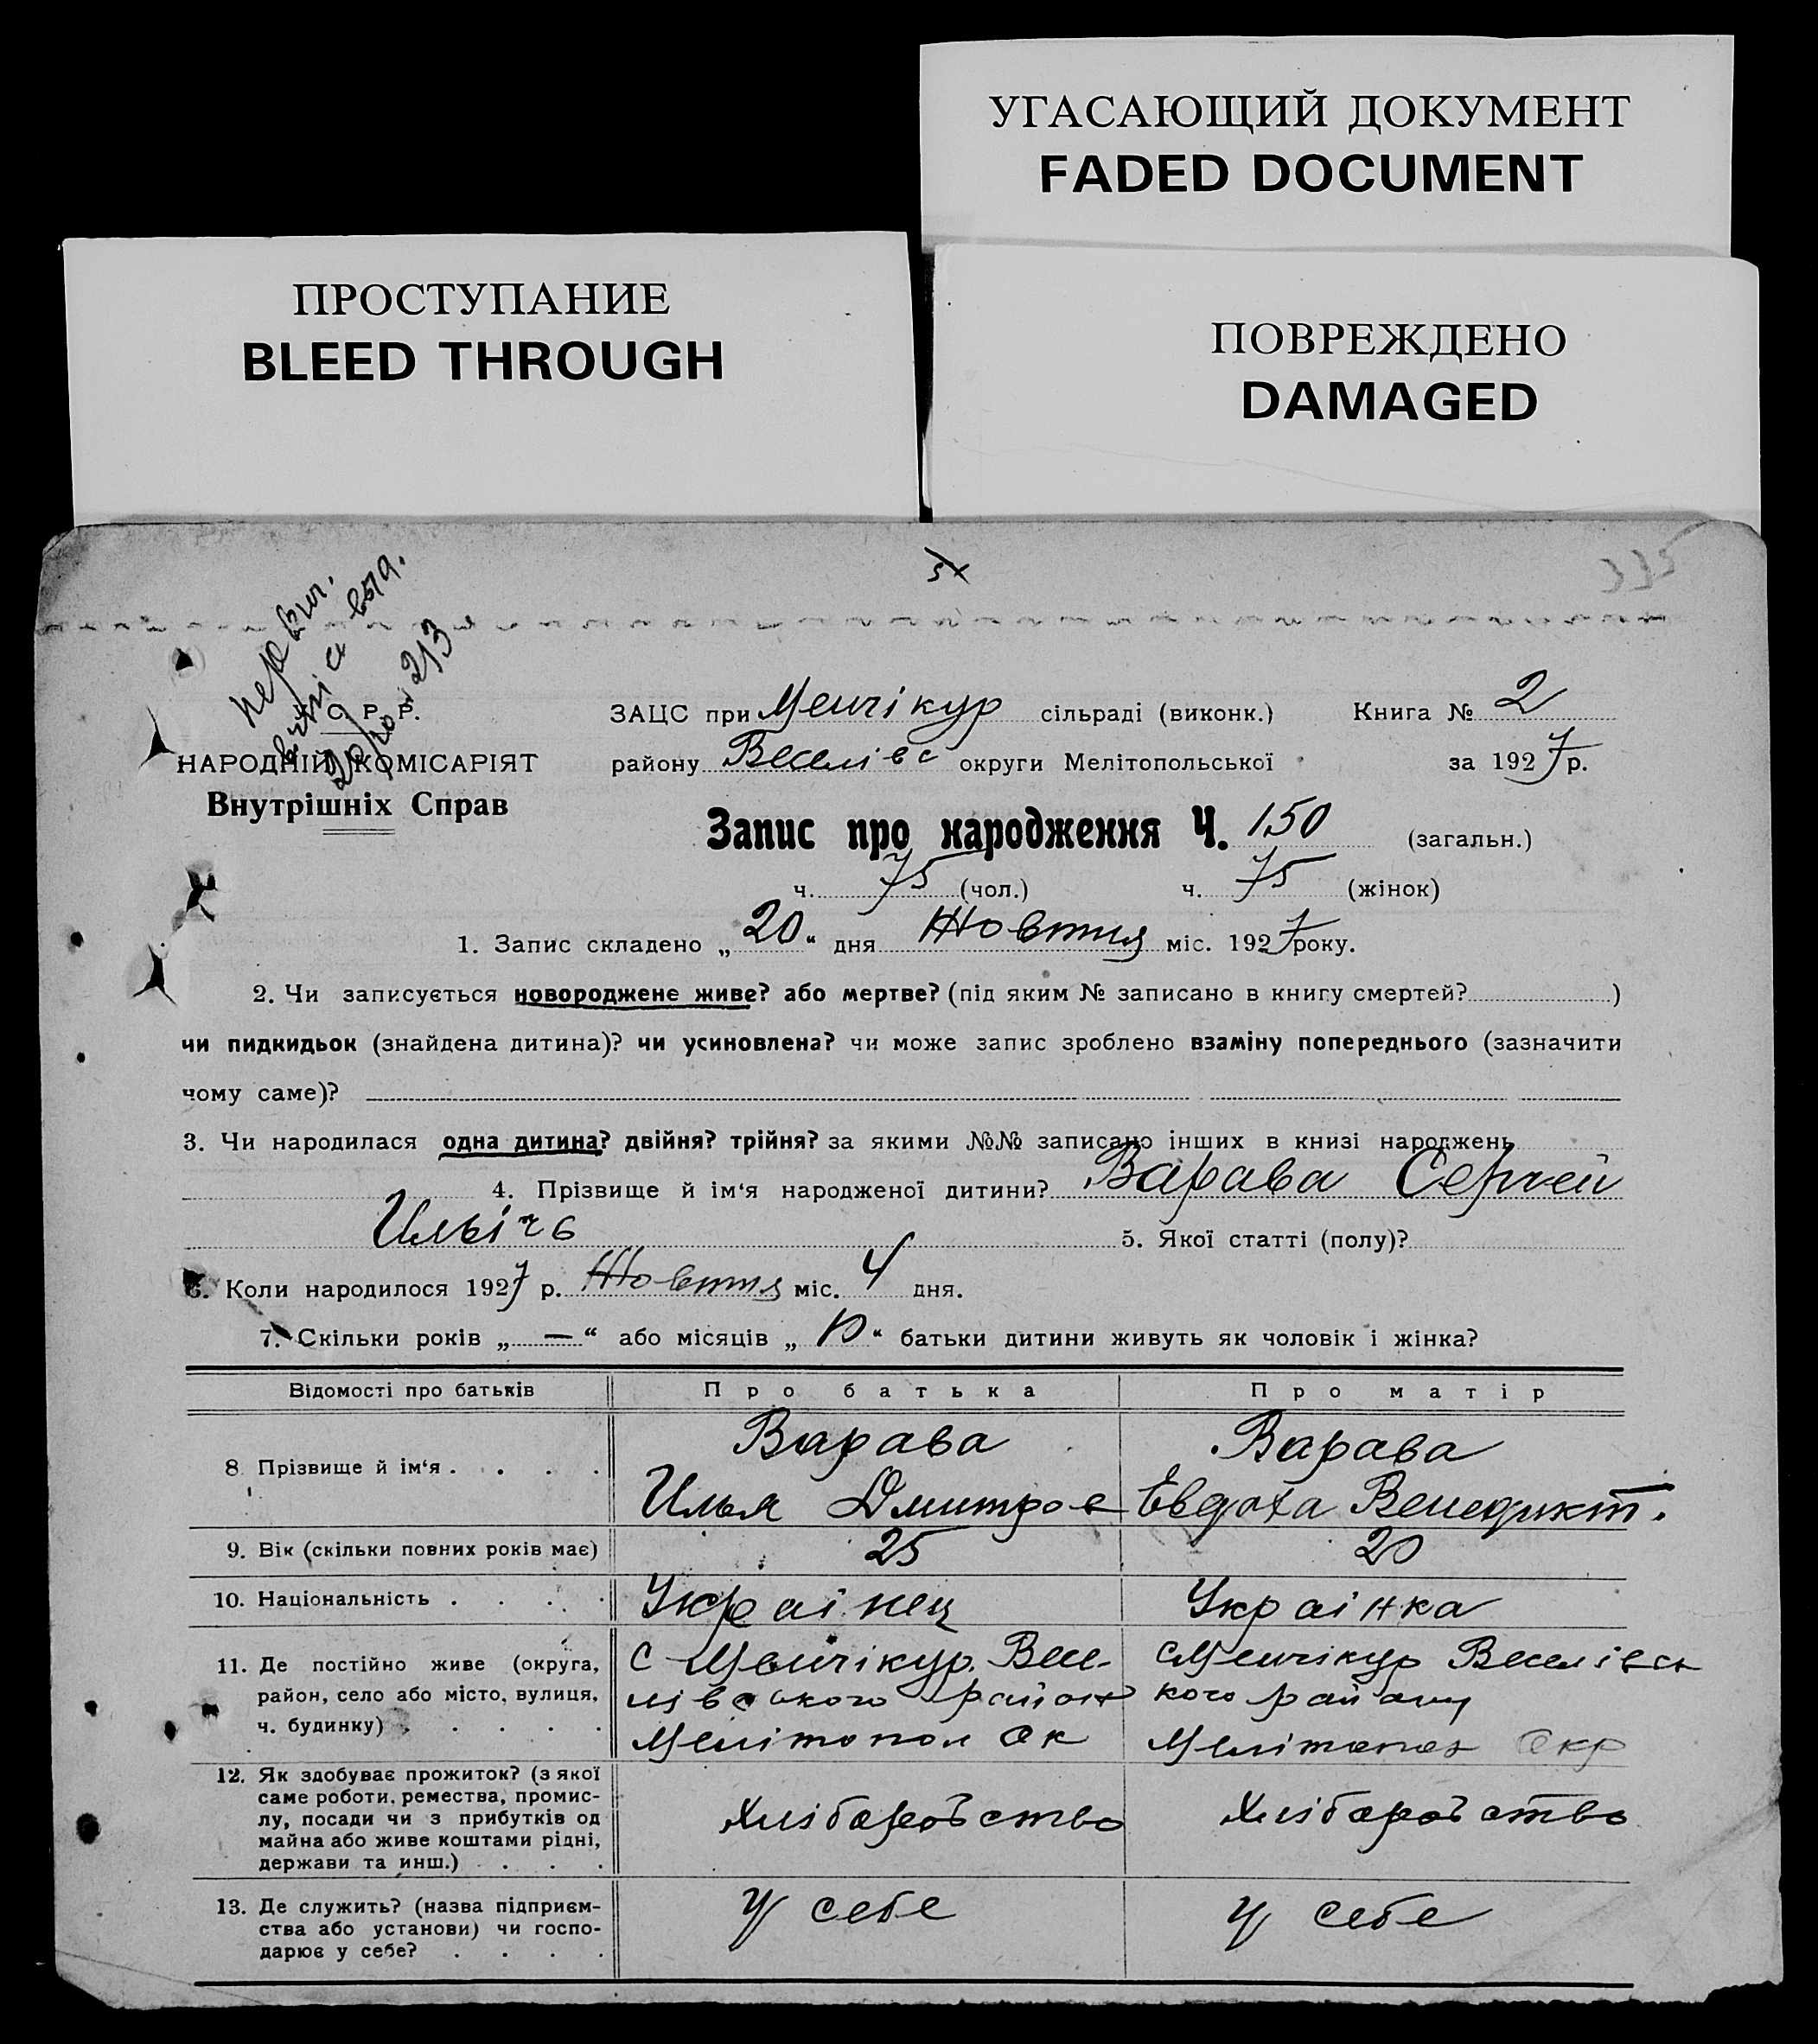 УГАСАЮЩИЙ ДОКУМЕНТ
FADED DOCUMENT
ПРОСТУПАНИЕ
BLEED THROUGH
ПОВРЕЖДЕНО
DAMAGED
335
213
С. Р. Р.
НАРОДНІЙ КОМІСАРІЯТ
Внутрішніх Справ
ЗАЦС при Менчікур сільраді (виконк.) Книга № 2
району Веселівс округи Мелітопольської за 1927 р.
Запис про народження Ч. 150 (загальн.)
ч. 75 (чол.) ч. 75 (жінок)
1. Запис складено „20“ дня Жовтня міс. 1927 року.
2. Чи записується новороджене живе? або мертве? (під яким № записано в книгу смертей? )
чи пидкидьок (знайдена дитина)? чи усиновлена? чи може запис зроблено взаміну попереднього (зазначити
чому саме)?
3. Чи народилася одна дитина? двійня? трійня? за якими №№ записано інших в книзі народжень
4. Прізвище й ім‘я народженої дитини? Варава Сергей
Ильічь 5. Якої статті (полу)?
6. Коли народилося 1927 р. Жовтня міс. 4 дня.
7. Скільки років „—“ або місяців „10“ батьки дитини живуть як чоловік і жінка?
Відомості про батьків Про батька Про матір
8 Прізвище й ім‘я . . . . Варава Варава
Илья Дмитров Евдоха Венедикт.
9. Вік (скільки повних років має) 25 20
10. Національність . . . . Украінец Украінка
11. Де постійно живе (округа, район, село або місто, вулиця, ч. будинку) . . . . .
С Менчікур. Весе- лівського район Мелітопол Ок
с Менчікур Веселівсь кого району Мелітопол Окр
12. Як здобуває прожиток? (з якої
саме роботи, ремества, промис-
лу, посади чи з прибутків од
майна або живе коштами рідні,
держави та инш.) . . . .
Хліборобство Хліборобство
13. Де служить? (назва підприєм-
ства або установи) чи госпо-
дарює у себе? . . . .
У себе У себе